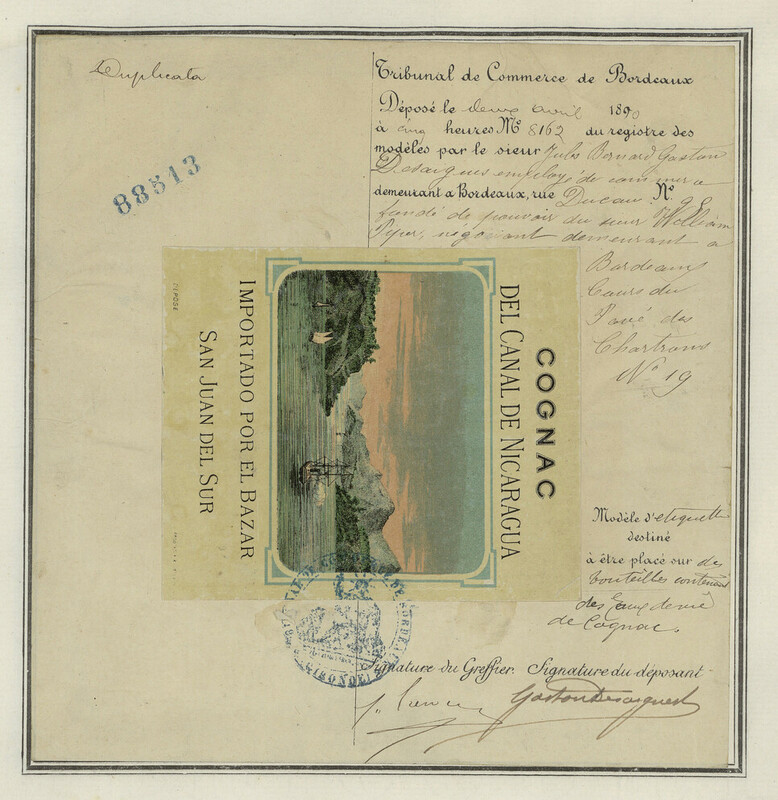 Duplicata
88513
Tribunal de Commerce de Bordeaux
Déposé le deux avril 1890
à cinq heures No 8162 du registre des
modèles par le sieur Jules Bernard Gaston
Desarques employé de commerce
demeurant à Bordeaux, rue Ducau No
fondé de pouvoir du sieur William
négociant demeurant a
Bordeaux
Cours du
Pavé des
Chartrons
No 19
COGNAC
DEL CANAL DE NICARAGUA
IMPORTADO POR EL BAZAR
SAN JUAN DEL SUR
DÉPOSÉ
Modèle d'etiquette
destiné
à être placé sur des
bouteilles contenant
des Eaux de vie
de Cognac.
GIRONDE
Signature du Greffier. Signature du déposant